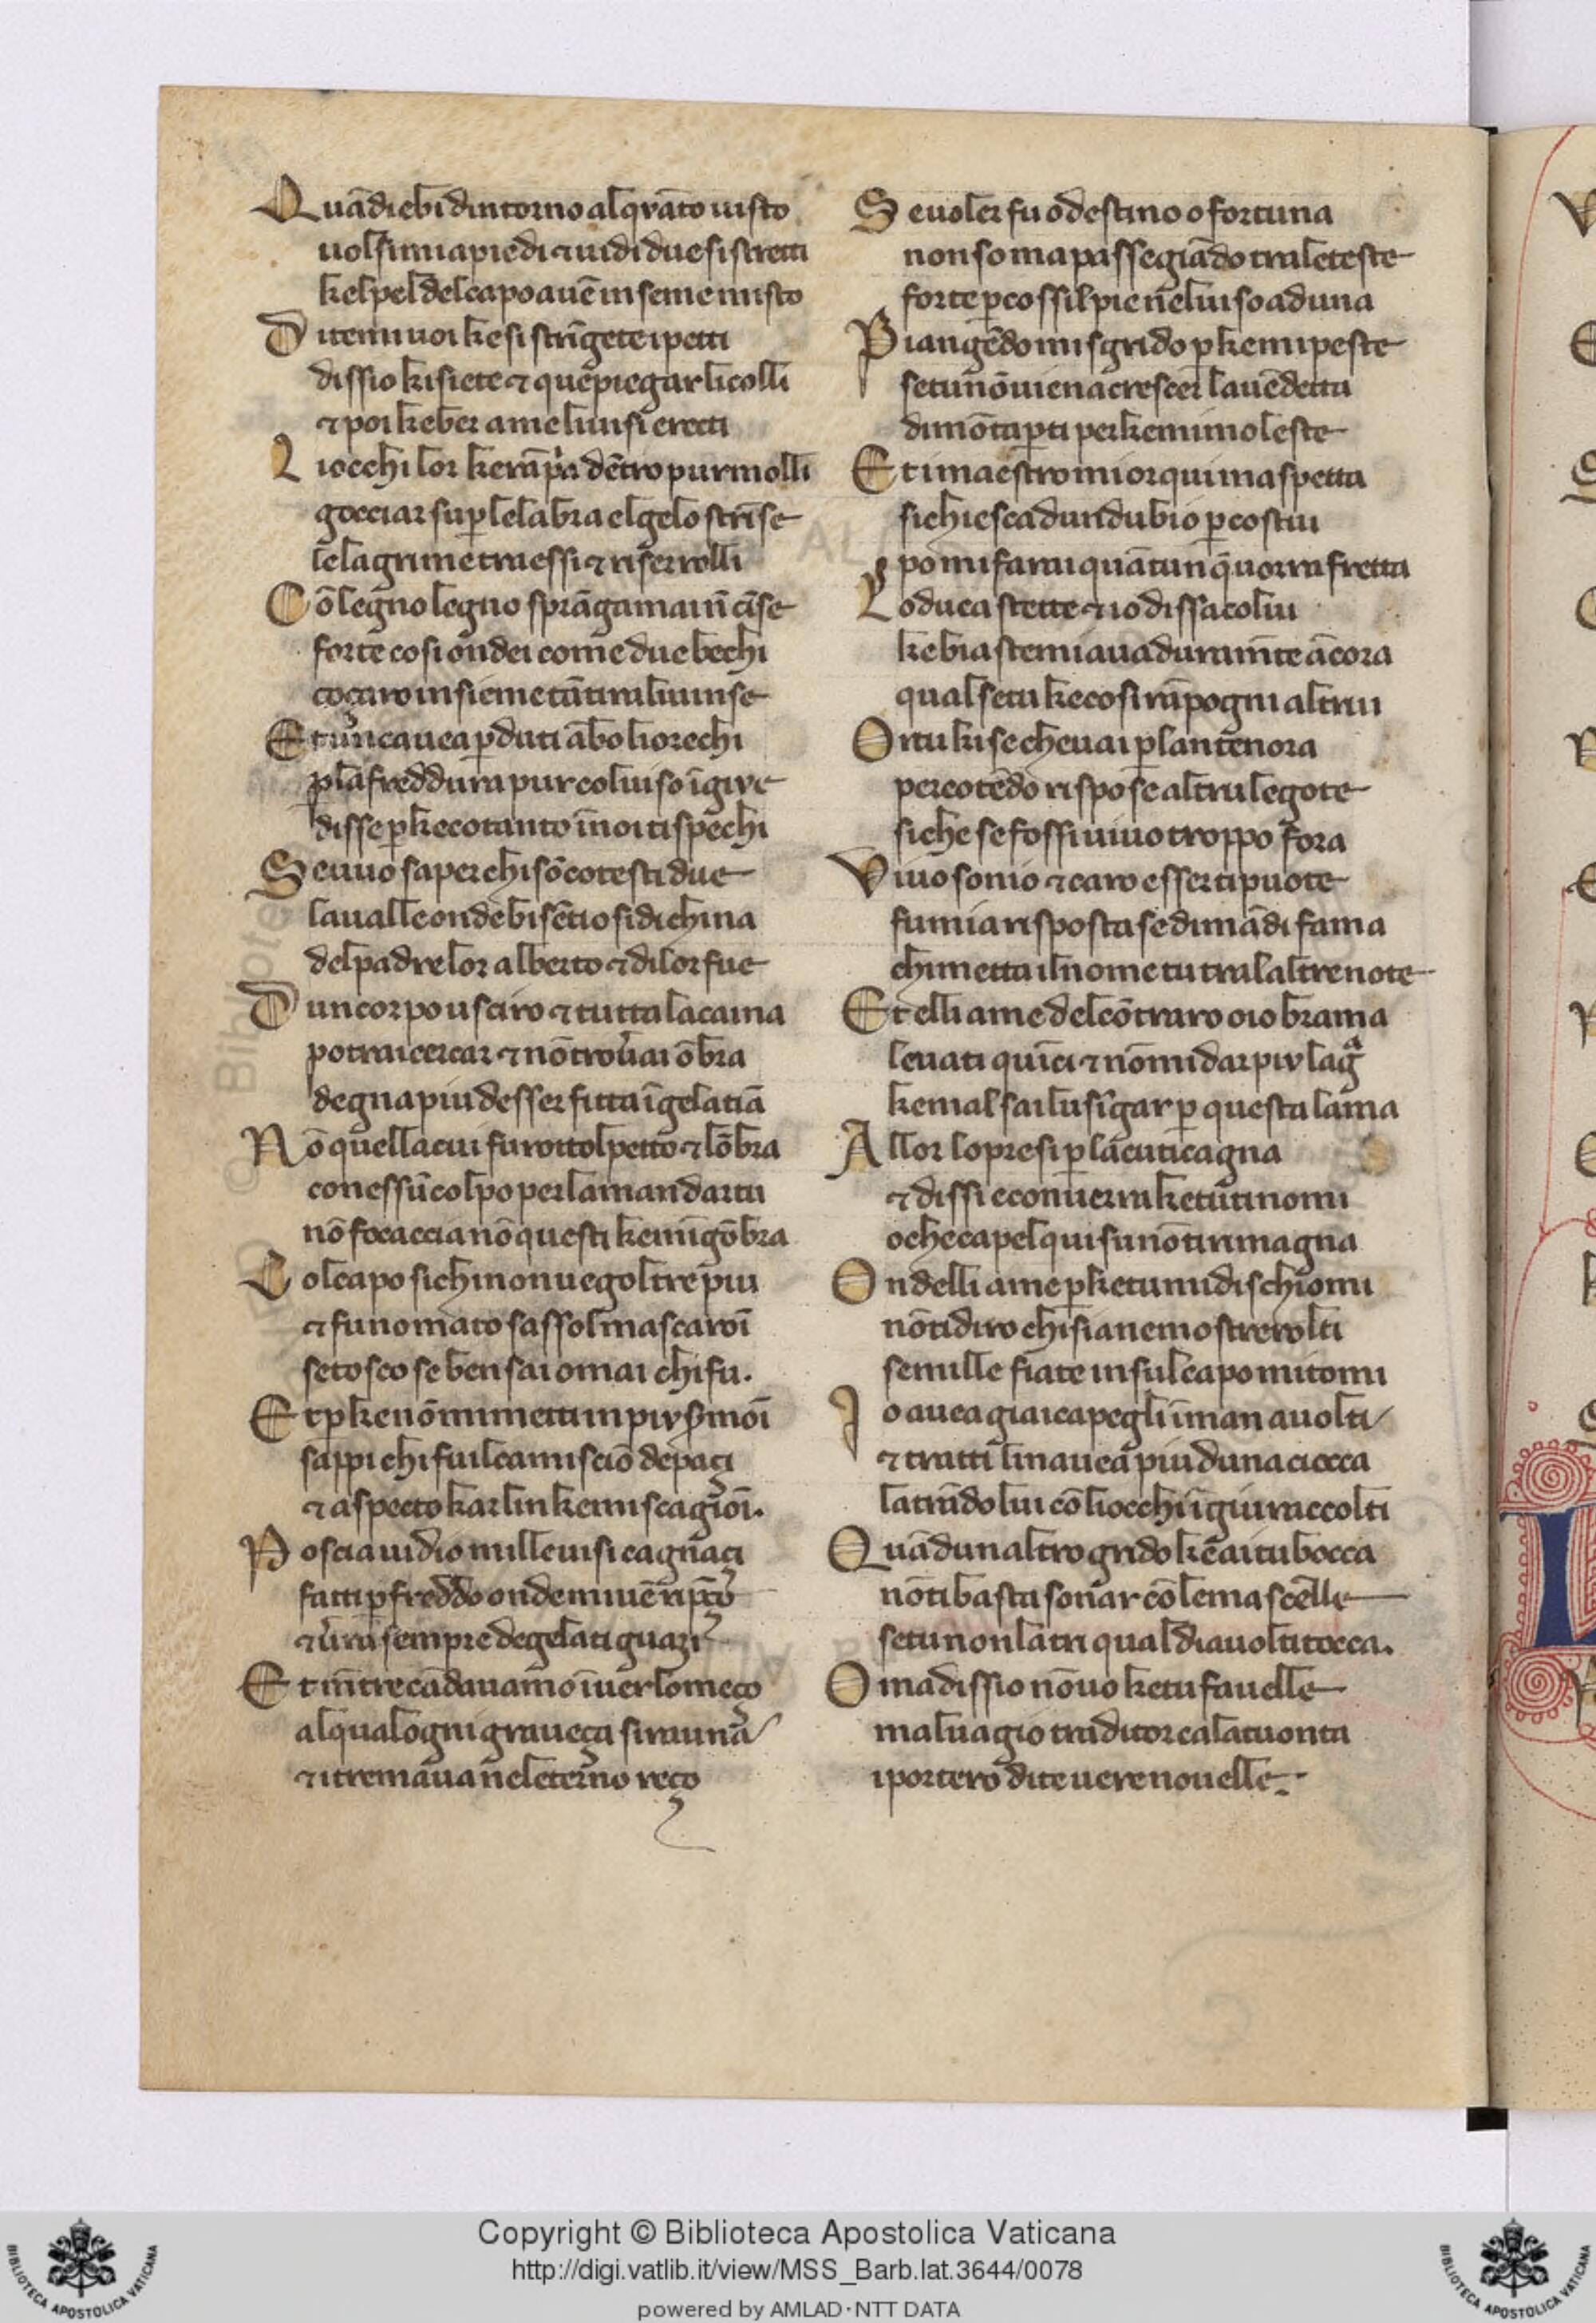 Quādi ebi dintorno alq̄rāto uisto
uolsimi apiedi ⁊ uidi due si stretti
kelpel delcapo auē inseme misto
Ditemi uoi ke si strīgete ipetti
dissio ki siete ⁊ que piegar li colli
⁊ poi keber ame li uisi erecti
Li occhi lor kerāp̄a dētro pur molli
gocciar sup̄ le labra el gelo strīse
le lagrime tra essi ⁊ riserrolli
Cō legno legno sprāga mai n̄ cīse
forte cosi ondei come due bechi
coçaro insieme tāt ira li uinse
Et ūn cauea p̄duti ābo li orechi
p̄ la freddura pur col uiso ī giue
disse p̄ke cotanto ī noi ti spechi
Se uuo saper chi sō cotesti due
laualle onde bisētio si dichina
del padre lor alberto ⁊ di lor fue
Dun corpo usciro ⁊ tutta la caina
potrai cercar ⁊ nō troūai ōbra
degna piu desser fitta ī gelatiā
Nō quella cui fu rotto l petto ⁊ lōbra
con essū colpo per la man dartu
nō focaccia nō questi ke mīgōbra
Col capo sichi non uegoltre piu
⁊ fu nomato sassol mascaroī
se tosco se ben sai omai chi fu.
Et p̄ke nō mi metti in piu s̄moī
sappi chi fui l camisciō de paçi
⁊ aspecto karlin ke mi scagioī.
Poscia uidio mille uisi cagnaçi
fatti p̄ freddo onde mi uē rip̄ço
⁊ ūra sempre de gelati guazi
Et m̄tre cādauamo īuer lo meço
al qual ogni graueça si rauna
⁊ i tremaua nel eterno reço
Se uoler fu o destino o fortuna
non so ma passegiādo tra le teste
forte p̄cossi l pie nel uiso aduna
Piangēdo mi sgrido p̄ke mi peste
se tu nō uien a crescer la uēdetta
di mōtap̄ti perke mi moleste
Et i maestro mi or qui maspetta
sichi esca dun dubio p̄ costui
po mi farai quātunq̄ uorra fretta
Lo duca stette ⁊ io dissa colui
ke biastemiaua duram̄te ācora
qual se tu ke cosi rāpogni altrui
Or tu ki se che uai p̄ lantenora
percotēdo rispose altru le gote
siche se fossi uiuo troppo fora
Viuo sonio ⁊ caro esser ti puote
fu mia risposta se dimādi fama
chi metta il nome tu tra laltre note
Et elli a me del cōtraro oio brama
leuati quīci ⁊ nō mi dar piu lag̃
ke mal sai lusīgar p̄ questa lama
Allor lo presi p̄ la cuticagna
⁊ dissi e conuerra ke tu ti nomi
o che capel qui su nō ti rimagna
Ondelli a me p̄ke tu mi dischiomi
nō ti diro chi sia ne mostrerolti
se mille fiate in sul capo mi tomi
Io auea gia i capegli ī man auolti
⁊ tratti lin auea piu duna ciocca
latrādo lui cō li occhi ī giu raccolti
Quādun altro grido kē ai tu bocca
nō ti basta sonar cō le mascelle
se tu non latri qual diauol ti tocca.
Oma dissio nō uo ke tu fauelle
maluagio traditor ca la tu onta
i portero di te uere nouelle.
Copyright © Biblioteca Apostolica Vaticana
http://digi.vatlib.it/view/MSS_Barb.lat.3644/0078
powered by AMLAD·NTT DATA
BIBLIOTECA APOSTOLICA VATICANA
BIBLIOTECA APOSTOLICA VATICANA